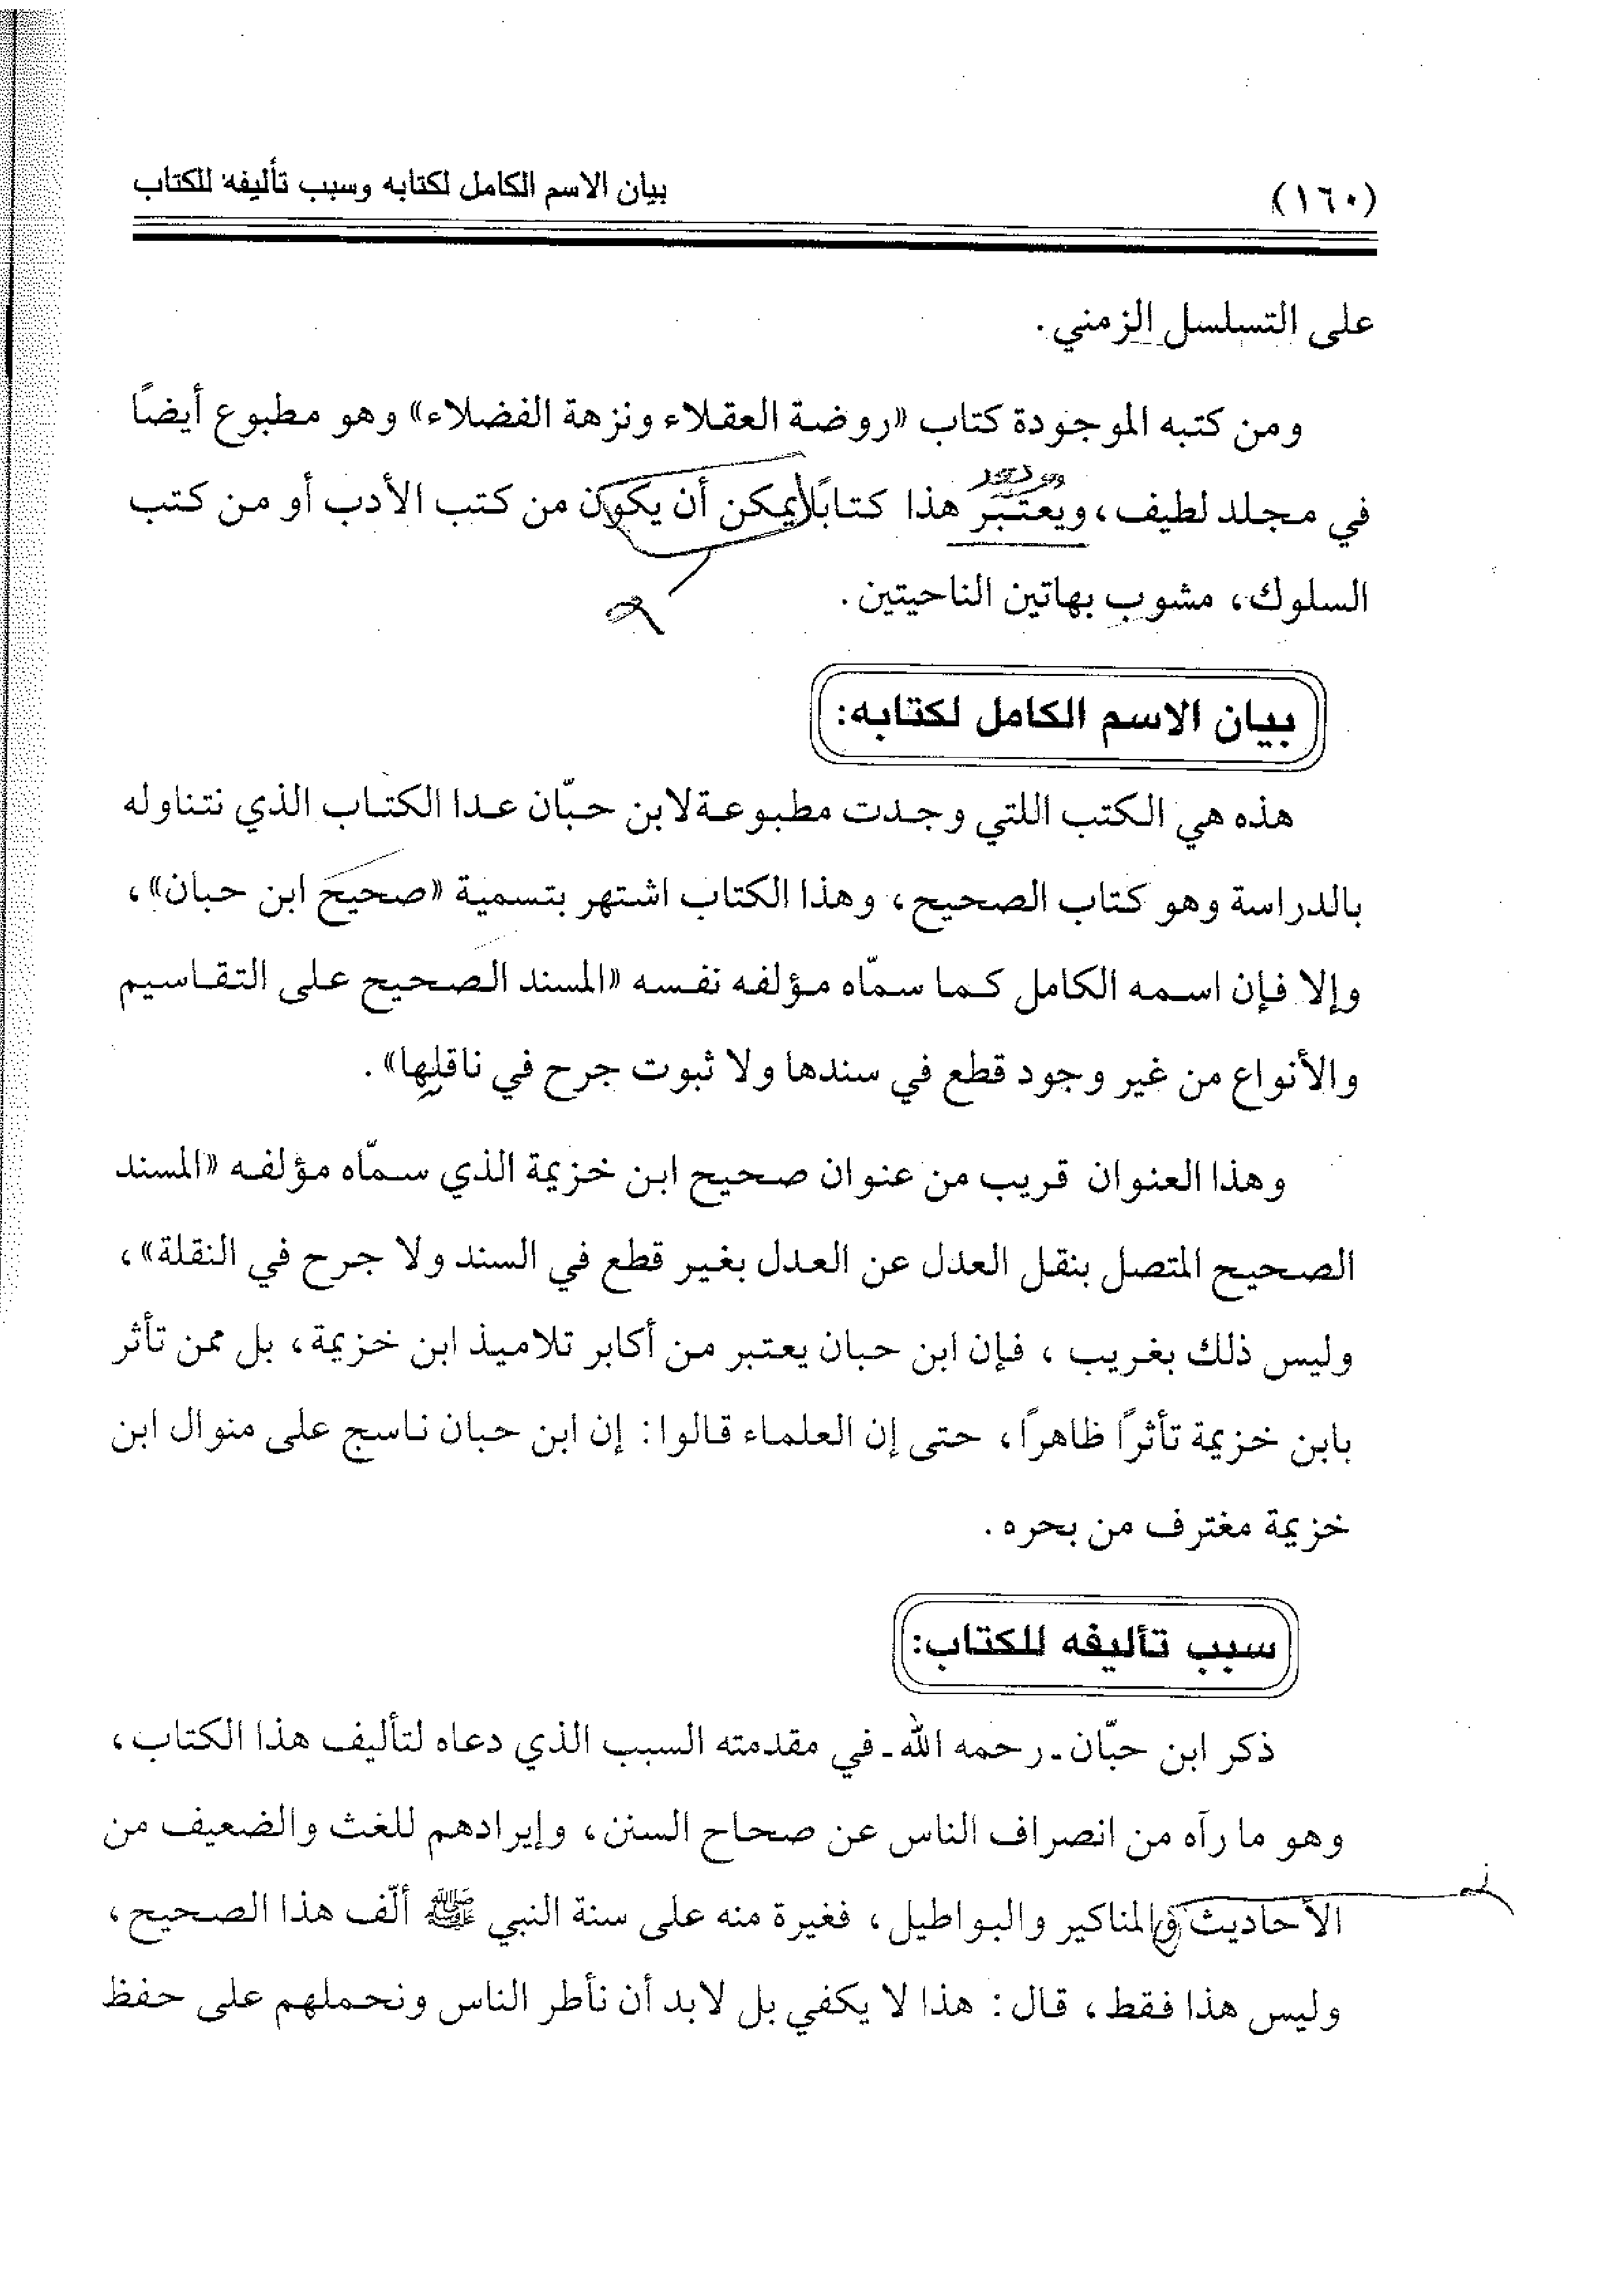 (١٦٠) بيان الاسم الكامل لكتابه وسبب تأليفه للكتاب
على التسلسل الزمني.
ومن كتبه الموجودة كتاب «روضة العقلاء ونزهة الفضلاء» وهو مطبوع أيضًا
في مجلد لطيف، ويعتبر هذا كتابًا يمكن أن يكون من كتب الأدب أو من كتب
السلوك، مشوب بهاتين الناحيتين.
بيان الاسم الكامل لكتابه:
هذه هي الكتب اللتي وجدت مطبوعة لابن حبّان عدا الكتاب الذي نتناوله
بالدراسة وهو كتاب الصحيح، وهذا الكتاب اشتهر بتسمية «صحيح ابن حبان»،
وإلا فإن اسمه الكامل كما سمّاه مؤلفه نفسه «المسند الصحيح على التقاسيم
والأنواع من غير وجود قطع في سندها ولا ثبوت جرح في ناقليها».
وهذا العنوان قريب من عنوان صحيح ابن خزيمة الذي سمّاه مؤلفه «المسند
الصحيح المتصل بنقل العدل عن العدل بغير قطع في السند ولا جرح في النقلة»،
وليس ذلك بغريب ، فإن ابن حبان يعتبر من أكابر تلاميذ ابن خزيمة، بل ممن تأثر
بابن خزيمة تأثرًا ظاهرًا، حتى إن العلماء قالوا: إن ابن حبان ناسج على منوال ابن
خزيمة مغترف من بحره.
سبب تأليفه للكتاب:
ذكر ابن حبّان - رحمه الله - في مقدمته السبب الذي دعاه لتأليف هذا الكتاب،
وهو ما رآه من انصراف الناس عن صحاح السنن، وإيرادهم للغث والضعيف من
الأحاديث والمناكير والبواطيل، فغيرة منه على سنة النبي ﷺ ألّف هذا الصحيح،
وليس هذا فقط، قال: هذا لا يكفي بل لابد أن نأطر الناس ونحملهم على حفظ